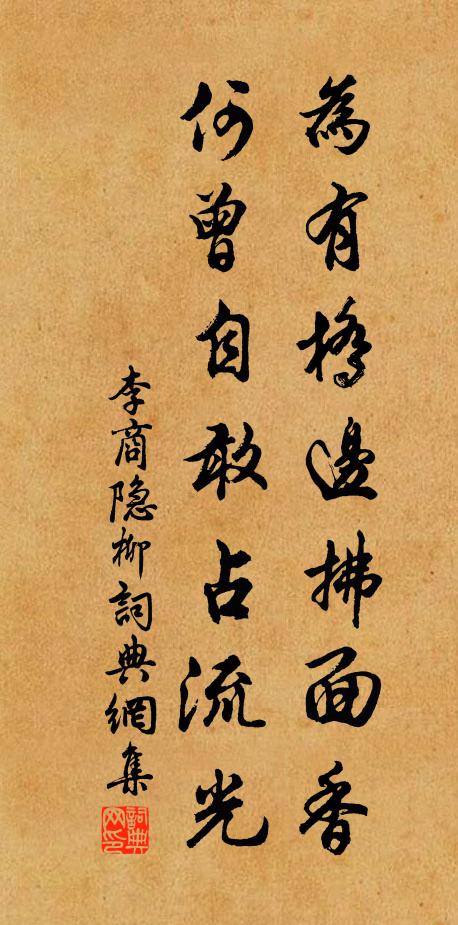 為有橋邊拂面香
何曾自敢占流光
李商隐柳詞典網集
詞典網印